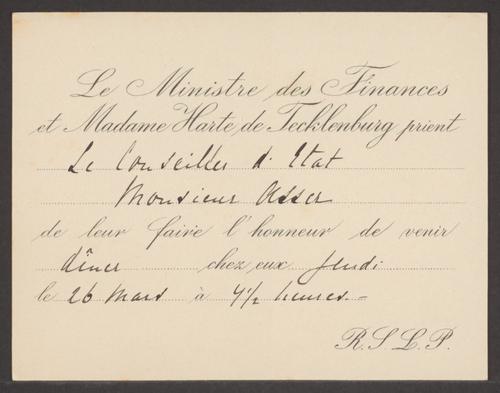 Le Ministre des Finances
et Madame Harte de Tecklenburg prient
Le Conseiller d'Etat
Monsieur Asser
de leur faire l'honneur de venir
dîner chez eux Jeudi
le 26 Mars à 7 1/2 heures.=
R.S.L.P.